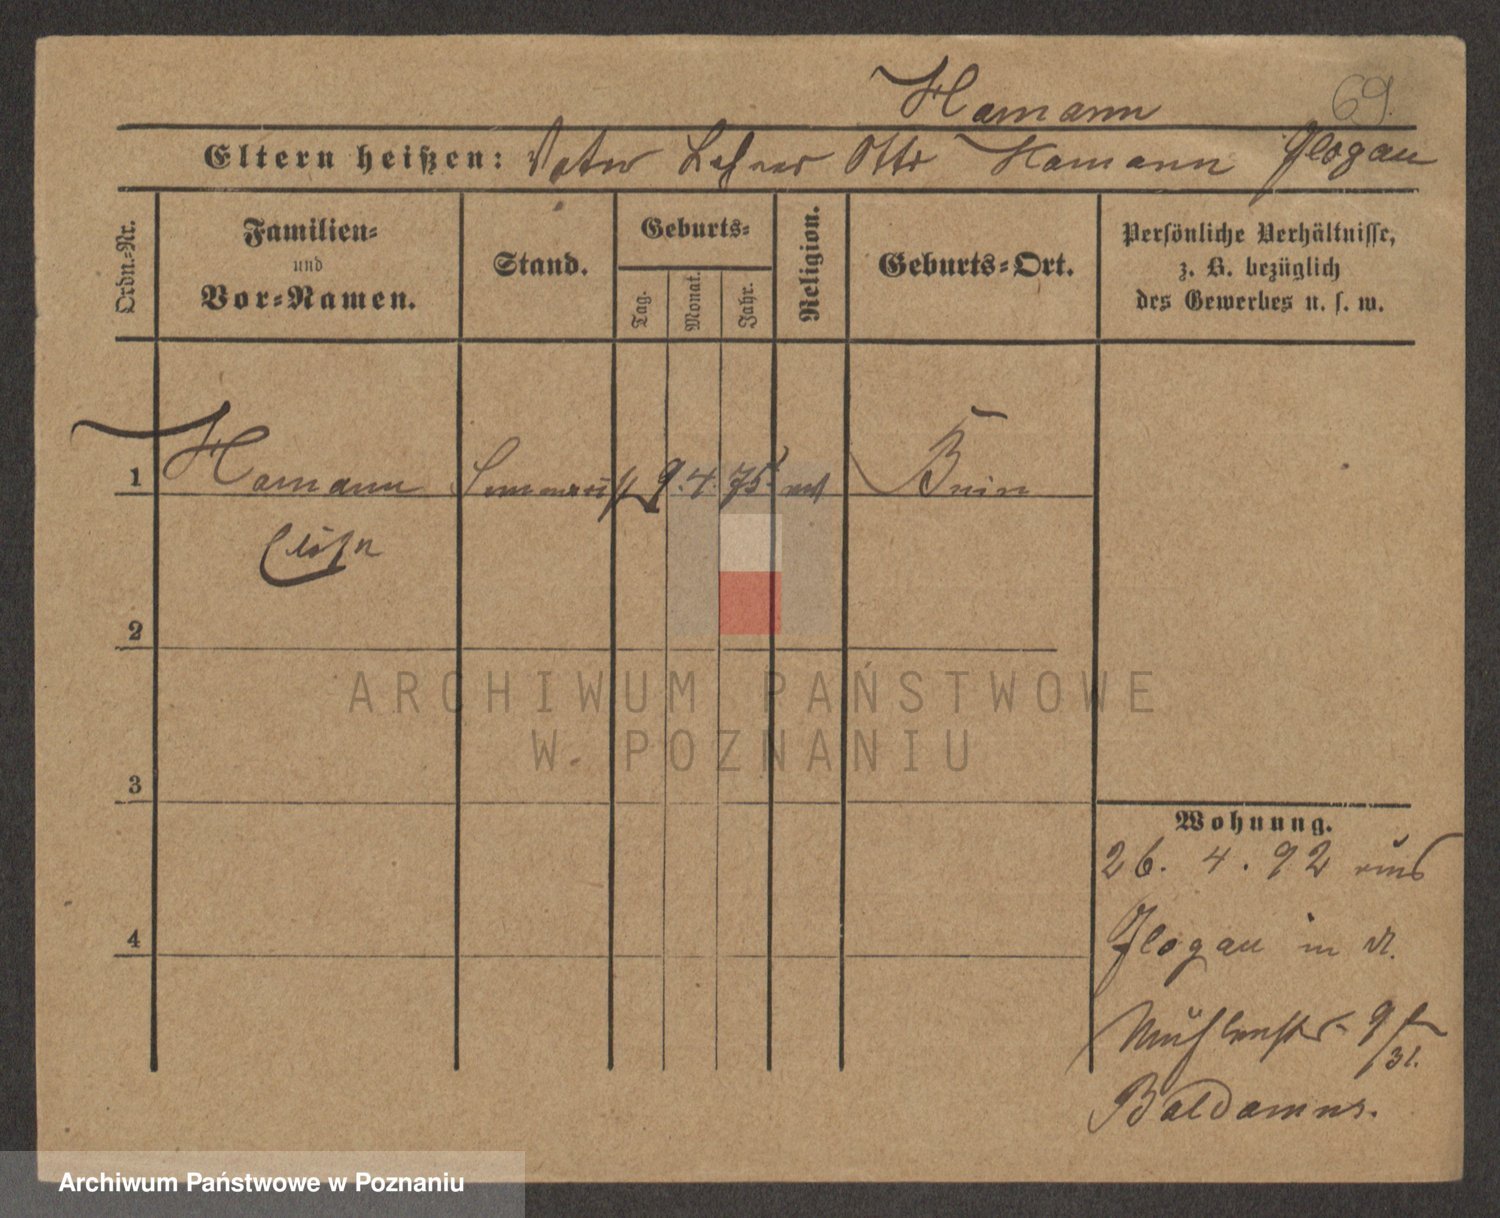 Hamann
69.
Eltern heißen: Vater Lehrer Otto Hamann Glogau
Ordn.-Nr.
Familien-
und
Vor-Namen.
Stand.
Geburts-
Tag.
Monat.
Jahr.
Religion.
Geburts-Ort.
Persönliche Verhältnisse,
z. B. bezüglich
des Gewerbes u. s. w.
1 Hamann 9. 4. 75 Bnin
2
3
4
Wohnung.
26. 4. 92 aus
Glogau in
Mühlenstr. 9
31.
Baldamus.
ARCHIWUM PAŃSTWOWE
W POZNANIU
Archiwum Państwowe w Poznaniu